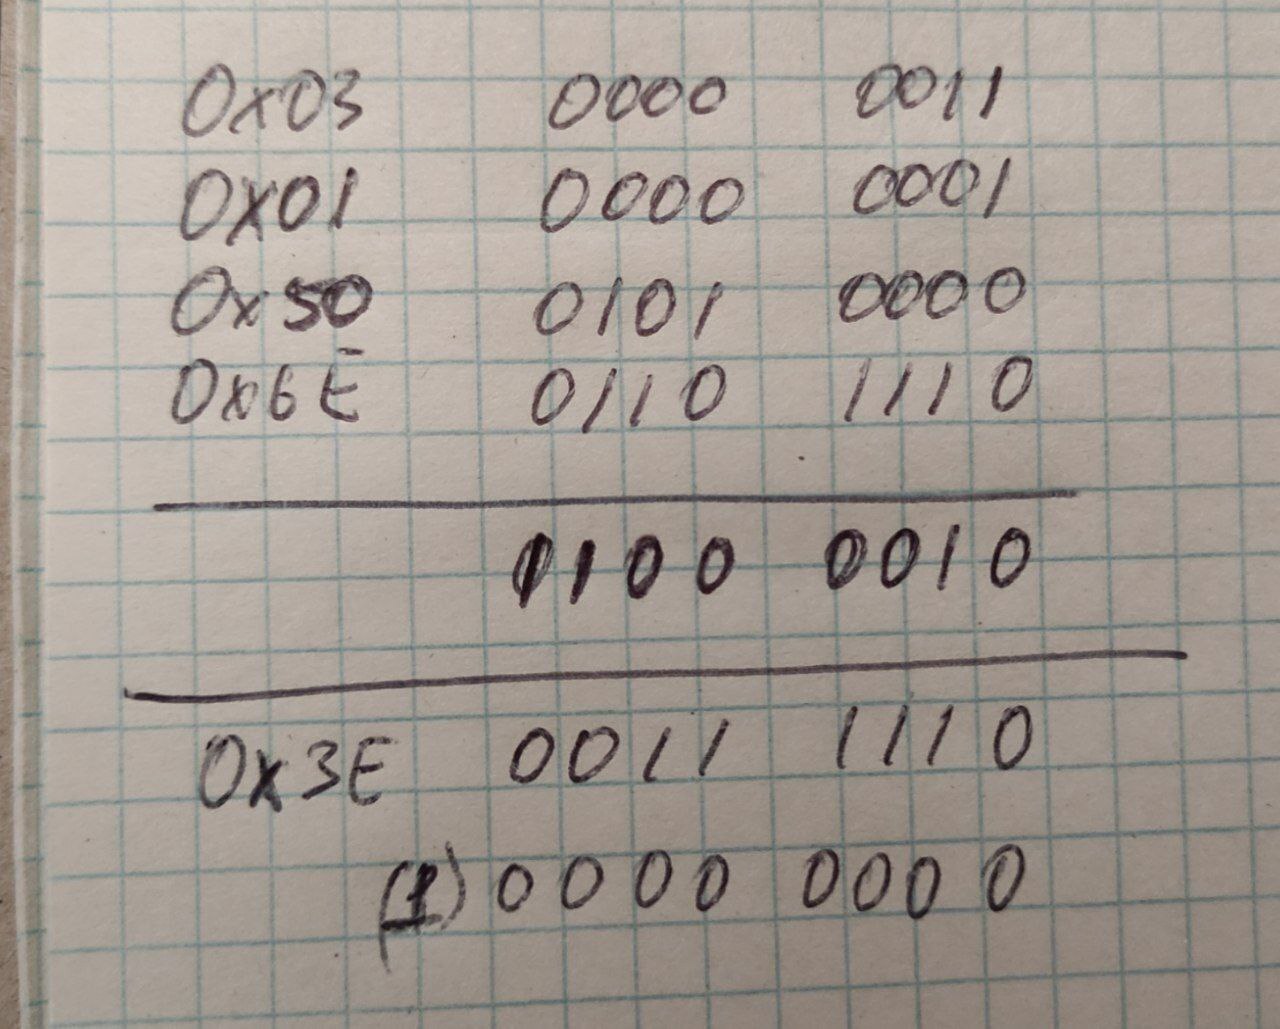 0x03 0000 0011
0x01 0000 0001
0x50 0101 0000
0x6E 0110 1110
1100 0010
0x3E 0011 1110
(1) 0000 0000